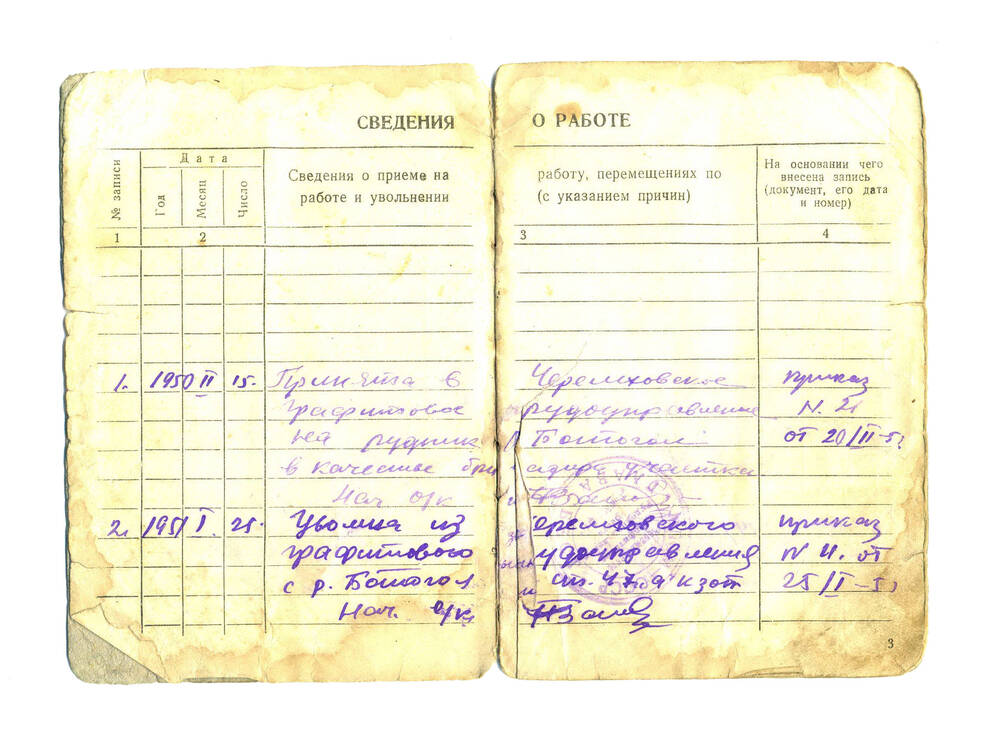 СВЕДЕНИЯ О РАБОТЕ
№ записи
Дата
Год
Месяц
Число
Сведения о приеме на работу, перемещениях по
работе и увольнении (с указанием причин)
На основании чего
внесена запись
(документ, его дата
и номер)
1 2 3 4
1. 1950 II 15. Принята в Черемховское приказ
графитовое рудоуправление N. 21
на рудник Ботогол от 20/II-5
в качестве участка
Нач о/к
2. 1951 I. 25. Уволена из Черемховского приказ
графитового рудоуправления N 11. от
с р. Ботогол ст. 47 кзот 25/I-51
Нач. о/к
3